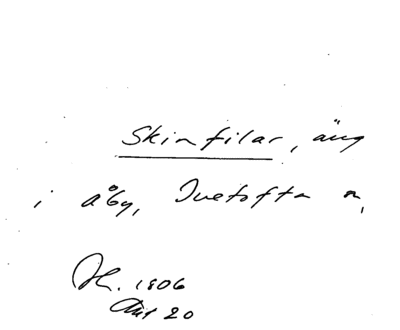 Skinfilar, äng
i Åby, Ivetofta n,
H. 1806
Akt 20